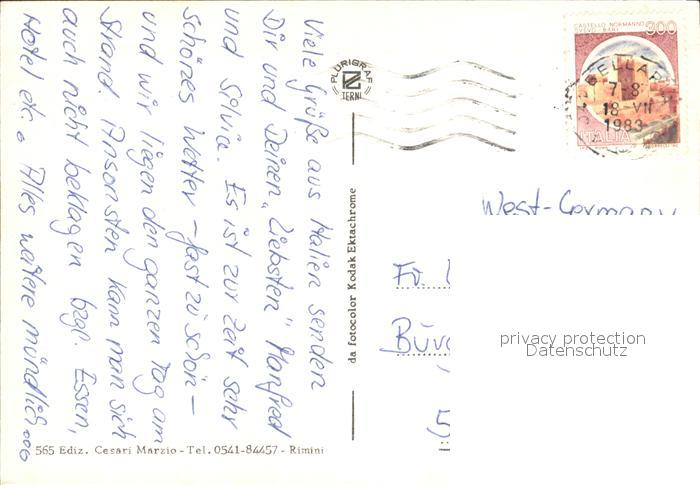 Viele Grüße aus Italien senden
Dir und Deinen „Liebsten" Manfred
und Silvia. Es ist zur Zeit sehr
schönes Wetter – fast zu schön –
und wir liegen den ganzen Tag am
Strand. Ansonsten kann man sich
auch nicht beklagen bzgl. Essen,
Hotel etc. Alles weitere mündlich...
565 Ediz. Cesari Marzio - Tel. 0541-84457 - Rimini
PLURIGRAF
TERNI
da fotocolor Kodak Ektachrome
CASTELLO NORMANNO
SVEVO - BARI
300
ITALIA
BELLAR
7-8
18-VII
1983
West-Germany
Fr.
privacy protection
Datenschutz